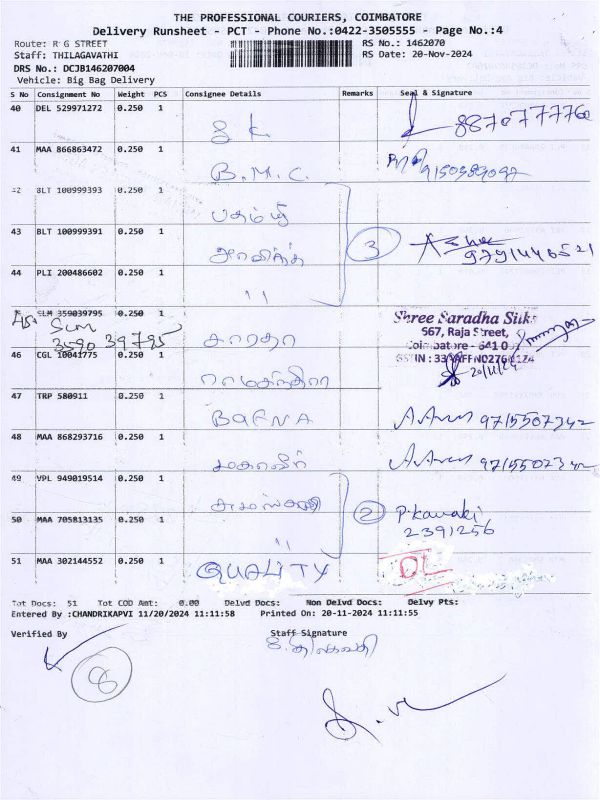 THE PROFESSIONAL COURIERS, COIMBATORE
Delivery Runsheet - PCT - Phone No.:0422-3505555 - Page No.:4
Route: R G STREET RS No.: 1462070
Staff: THILAGAVATHI RS Date: 20-Nov-2024
DRS No.: DCJB146207004
Vehicle: Big Bag Delivery
S No Consignment No Weight PCS Consignee Details Remarks Seal & Signature
40 DEL 529971272 0.250 1 S K 8870777760
41 MAA 866863472 0.250 1 B.M.C.
42 BLT 100999393 0.250 1
43 BLT 100999391 0.250 1 3 9791446521
44 PLI 200486602 0.250 1 "
45 SLM 359039795 0.250 1 சாரதா
45. SLM
359039795
Shree Saradha Silks
567, Raja Street,
Coimbatore - 641 001
46 CGL 10041775 0.250 1 20/11/24
47 TRP 580911 0.250 1 BAFNA 9715507342
48 MAA 868293716 0.250 1 மகாவீர்
49 VPL 949019514 0.250 1 2 P. Kanaki
2391256
50 MAA 705813135 0.250 1 "
51 MAA 302144552 0.250 1 QUALITY DL
Tot Docs: 51 Tot COD Amt: 0.00 Delvd Docs: Non Delvd Docs: Delvy Pts:
Entered By :CHANDRIKAPVI 11/20/2024 11:11:58 Printed On: 20-11-2024 11:11:55
Verified By Staff Signature
8